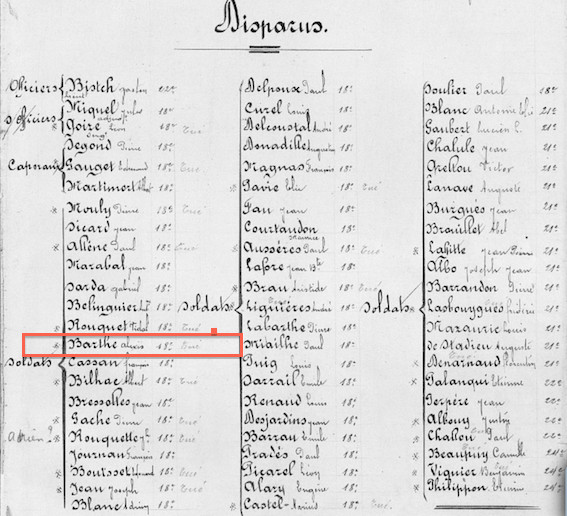 Disparus.
Officiers
Bistch gaston 12e
S/Officiers
Miquel Jules 18e
Goire Léon 18e Tué
Segond Pierre 18e
Capraux
Gauget Edmond 18e Tué
Martimort Albert 18e
Mouly Pierre 18e Tué
Sicard Jean 18e
Allène Paul 18e Tué
Marabal Jean 18e
Sarda gabriel 18e
Belinguier 18e
Rouquet 18e Tué
Barthe alexis 18e Tué
Soldats
Cassan françois 18e
Bilhac Albert 18e Tué
Bressolles Jean 18e
Gache Pierre 18e Tué
Rouquette 18e Tué
Journan François 18e
Bouisset 18e Tué
Jean Joseph 18e Tué
Blanc Adrien 18e
Delpoux Paul 18e
Curel Louis 18e
Delcoustal André 18e
Bonadille Augustin 18e
Magnas François 18e
Favre Elie 18e Tué
Fau Jean 18e
Courtaudon Maurice 18e
Aussères Paul 18e Tué
Lafore Jean Bte 18e
Brau Aristide 18e Tué
Soldats
Liguières André 18e Tué
Labarthe Pierre 18e
Miailhe Paul 18e
Puig Louis 18e
Sarrail Emile 18e
Renaud Louis 18e
Desjardins Jean 18e
Barrau Emile 18e
Pradès Paul 18e
Picarel Léon 18e
Alary Eugène 18e
Castel Marius 18e Tué
Soulier Paul 18e
Blanc Antonin 21e
Gaubert Lucien 21e
Chalule Jean 21e
Orellou Victor 21e
Lanave Auguste 21e
Burguès Jean 21e
Brauillet Abel 21e
Lafitte Jean Pierre 21e
Albo Joseph Jean 21e
Barrandon 21e
Soldats
Lasbouygues Frédéric 21e
Mazauric Louis 21e
de Stadieu Augustin 21e
Bénarnaud Florentin 21e
Galanqui Etienne 22e
Serpère Jean 22e
Albouy 22e
Challou Paul 22e
Beaupuy Camille 24e
Viguier Benjamin 24e
Philippon Etienne 24e